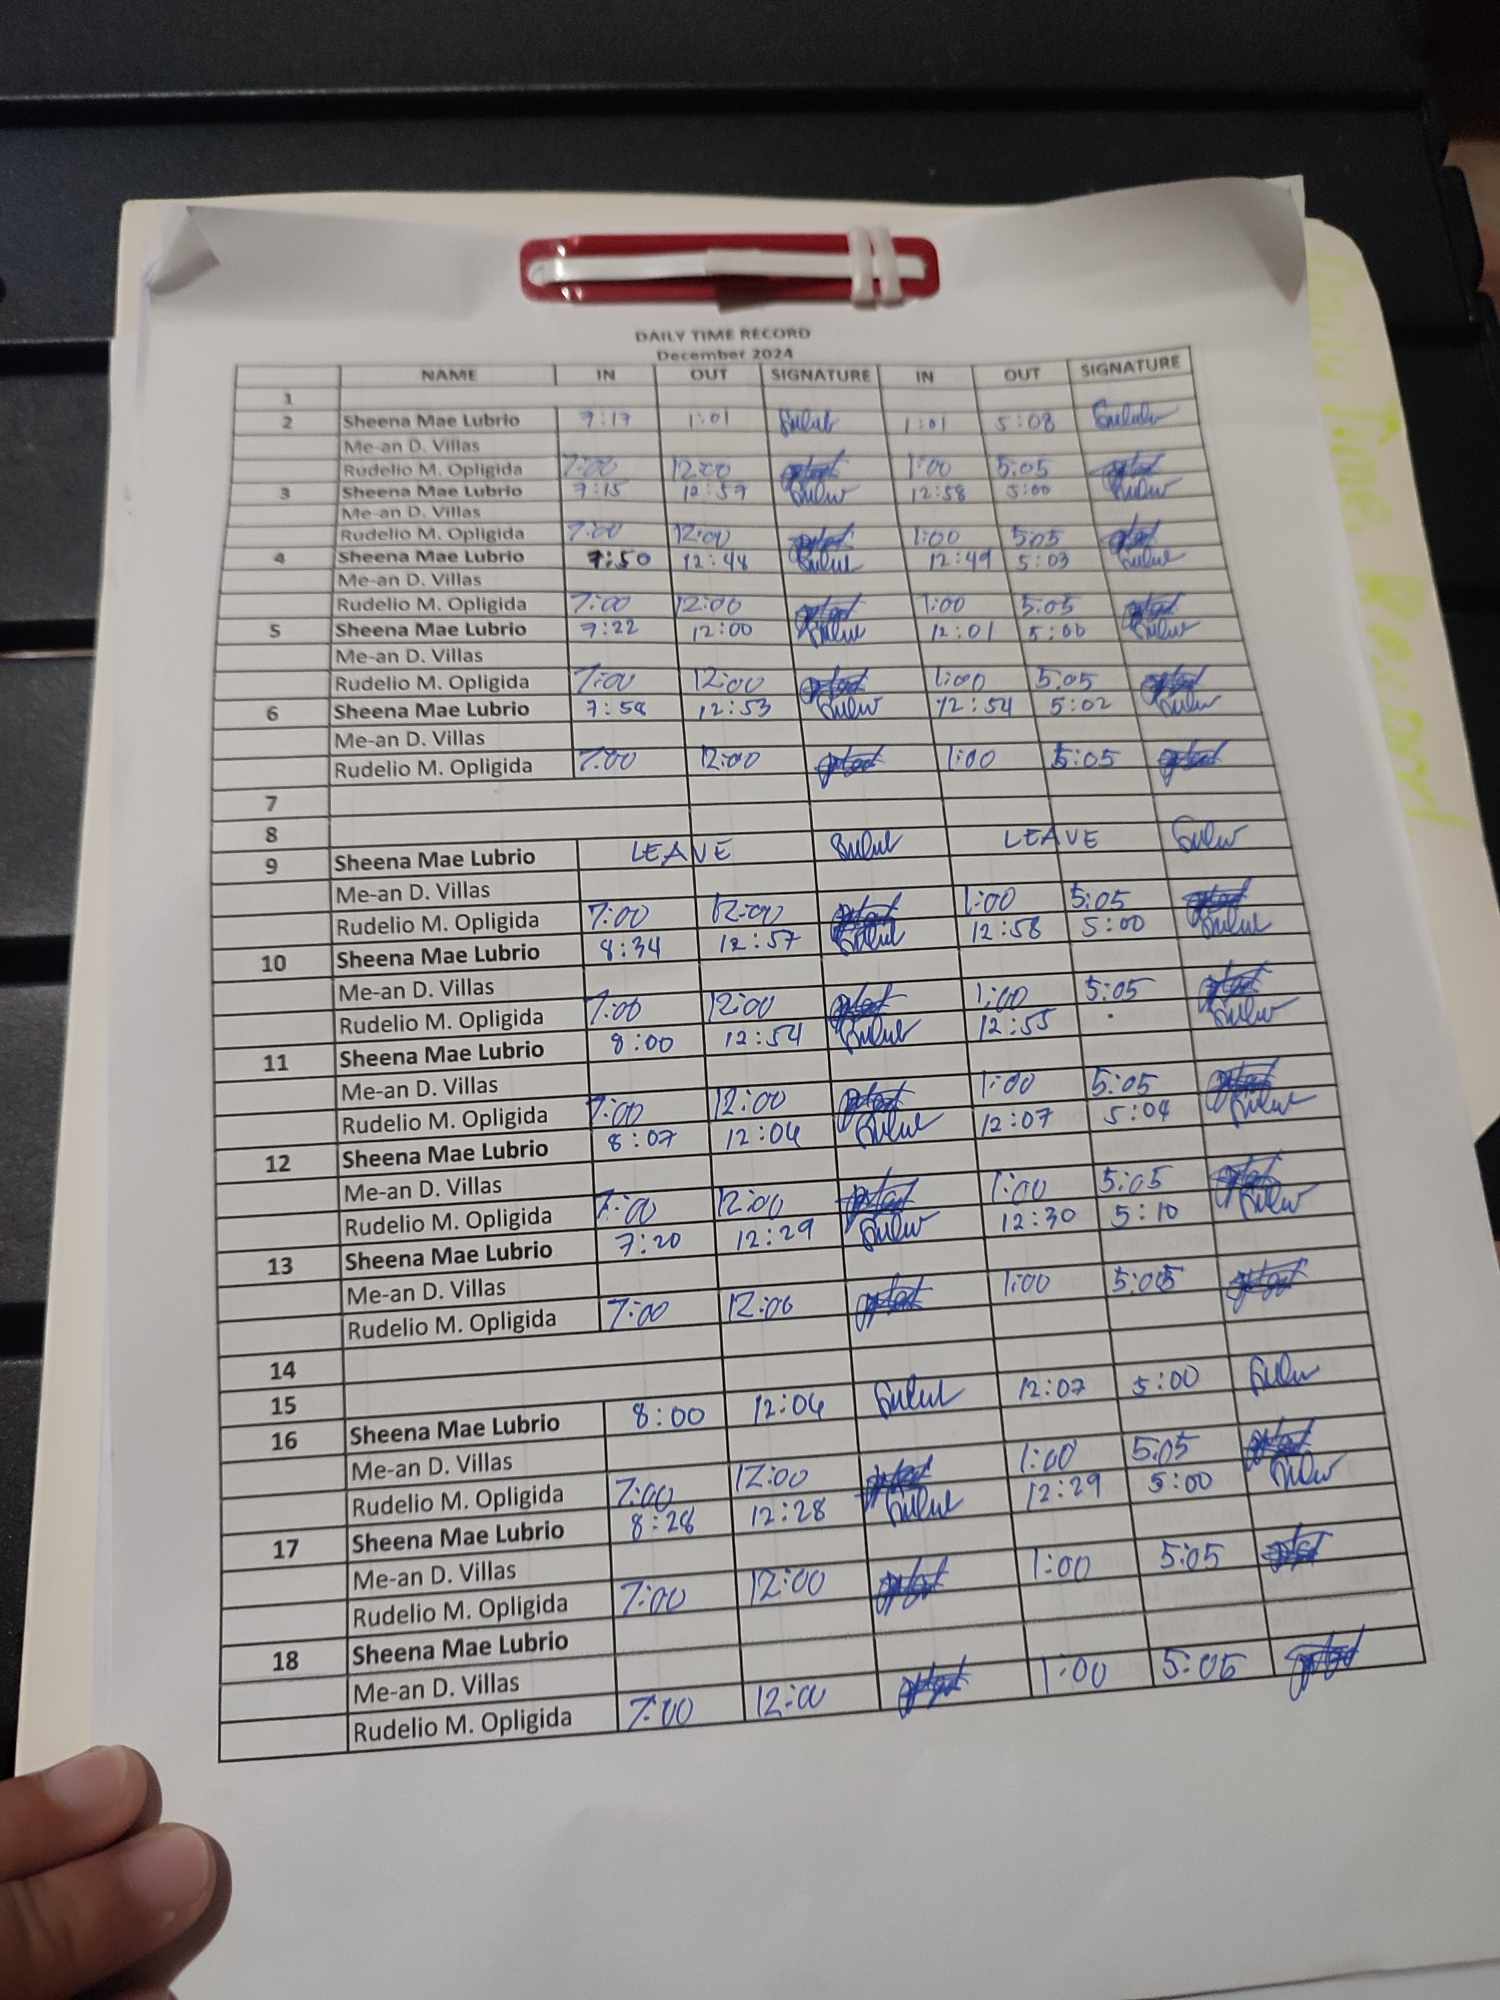 DAILY TIME RECORD
December 2024
NAME IN OUT SIGNATURE IN OUT SIGNATURE
1
2 Sheena Mae Lubrio 7:17 1:01 1:01 5:08
Me-an D. Villas
Rudelio M. Opligida 7:00 12:00 1:00 5:05
3 Sheena Mae Lubrio 7:15 12:57 12:58 5:00
Me-an D. Villas
Rudelio M. Opligida 7:00 12:00 1:00 5:05
4 Sheena Mae Lubrio 7:50 12:48 12:49 5:03
Me-an D. Villas
Rudelio M. Opligida 7:00 12:00 1:00 5:05
5 Sheena Mae Lubrio 7:22 12:00 12:01 5:00
Me-an D. Villas
Rudelio M. Opligida 7:00 12:00 1:00 5:05
6 Sheena Mae Lubrio 7:58 12:53 12:54 5:02
Me-an D. Villas
Rudelio M. Opligida 7:00 12:00 1:00 5:05
7
8
9 Sheena Mae Lubrio LEAVE LEAVE
Me-an D. Villas
Rudelio M. Opligida 7:00 12:00 1:00 5:05
10 Sheena Mae Lubrio 8:34 12:57 12:58 5:00
Me-an D. Villas
Rudelio M. Opligida 7:00 12:00 1:00 5:05
11 Sheena Mae Lubrio 8:00 12:54 12:55
Me-an D. Villas
Rudelio M. Opligida 7:00 12:00 1:00 5:05
12 Sheena Mae Lubrio 8:07 12:06 12:07 5:04
Me-an D. Villas
Rudelio M. Opligida 7:00 12:00 1:00 5:05
13 Sheena Mae Lubrio 7:20 12:29 12:30 5:10
Me-an D. Villas
Rudelio M. Opligida 7:00 12:00 1:00 5:05
14
15
16 Sheena Mae Lubrio 8:00 12:06 12:07 5:00
Me-an D. Villas
Rudelio M. Opligida 7:00 12:00 1:00 5:05
17 Sheena Mae Lubrio 8:28 12:28 12:29 5:00
Me-an D. Villas
Rudelio M. Opligida 7:00 12:00 1:00 5:05
18 Sheena Mae Lubrio
Me-an D. Villas
Rudelio M. Opligida 7:00 12:00 1:00 5:05
Daily Time Record